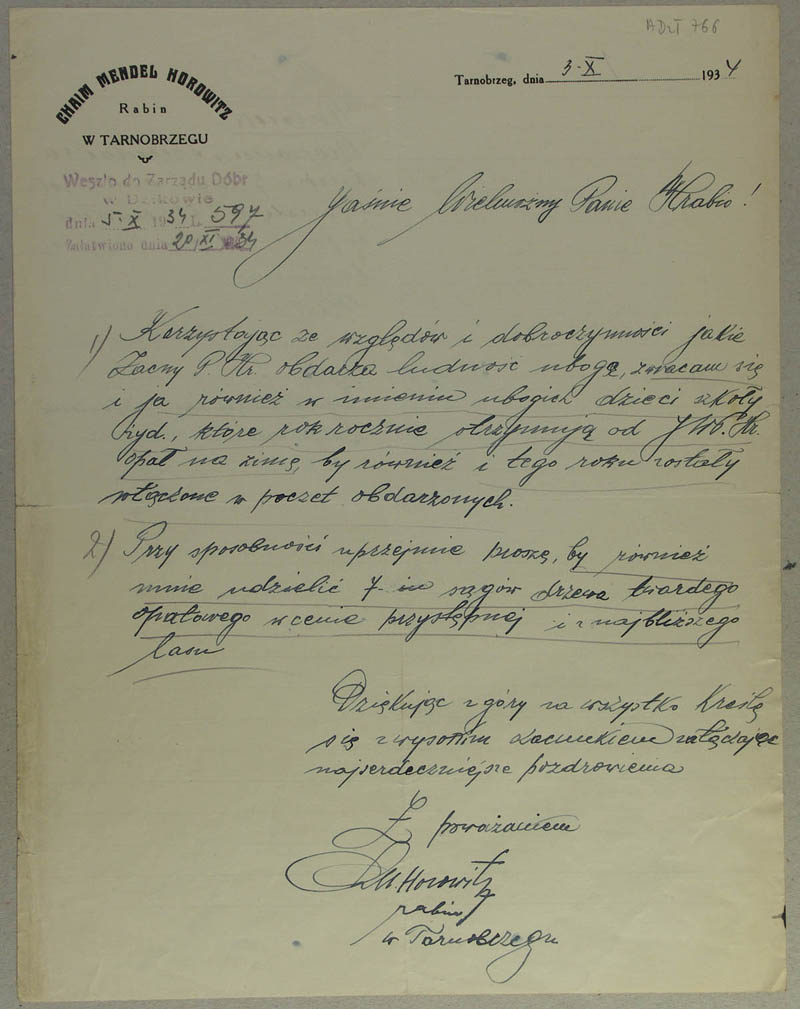 ADzT 766
CHAIM MENDEL HOROWITZ
Rabin
W TARNOBRZEGU
Tarnobrzeg, dnia 3-X 1934
Weszło do Zarządu Dóbr
w Dzikowie
dnia 5-X 1934 L. 597
Załatwiono dnia 20/XI 34
Jaśnie Wielmożny Panie Hrabio!
1) Korzystając ze względów i dobroczynności jakie
Zacny P. Hr. obdarza ludność ubogą, zwracam się
i ja również w imieniu ubogich dzieci szkoły
żyd., które rok rocznie otrzymują od JWP. Hr.
opał na zimę, by również i tego roku zostały
włączone w poczet obdarzonych.
2) Przy sposobności uprzejmie proszę, by również
mnie udzielić 7-iu sągów drzewa twardego
opałowego w cenie przystępnej i z najbliższego
lasu
Dziękując z góry za wszystko kreślę
się z wysokim szacunkiem załączając
najserdeczniejsze pozdrowienia
Z poważaniem
Ch. M. Horowitz
rabin
w Tarnobrzegu